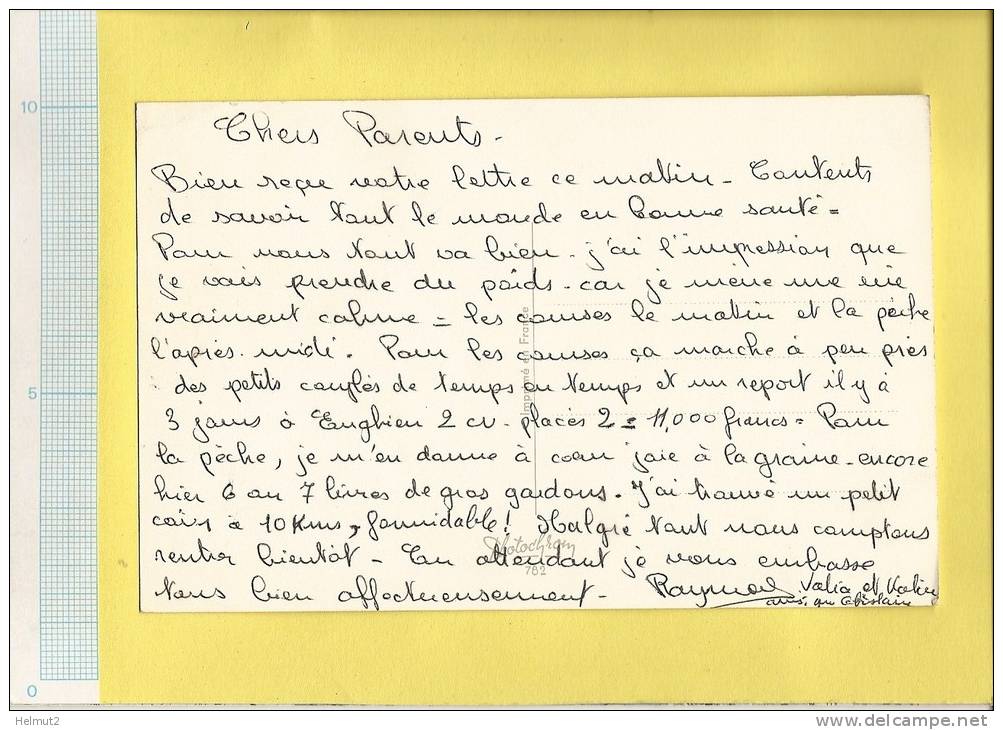 Chers Parents -
Bien reçue votre lettre ce matin - Contents
de savoir tout le monde en bonne santé =
Pour nous tout va bien - j'ai l'impression que
je vais prendre du poids - car je mène une vie
vraiment calme = les courses le matin et la pêche
l'après-midi. Pour les courses ça marche à peu près
des petits couplés de temps en temps et un report il y à
3 jours à Enghien 2 cv. placés 2 = 11,000 francs = Pour
la pêche, je m'en donne à coeur joie à la graine - encore
hier 6 ou 7 livres de gros gardons. J'ai trouvé un petit
coin à 10 Kms, formidable! Malgré tout nous comptons
rentrer bientôt - En attendant je vous embrasse
tous bien affectueusement - Raymond
Valia et Katia
ainsi que Ghislain
Imprimé en France
Photochrom
782
10
5
0
Helmut2
www.delcampe.net